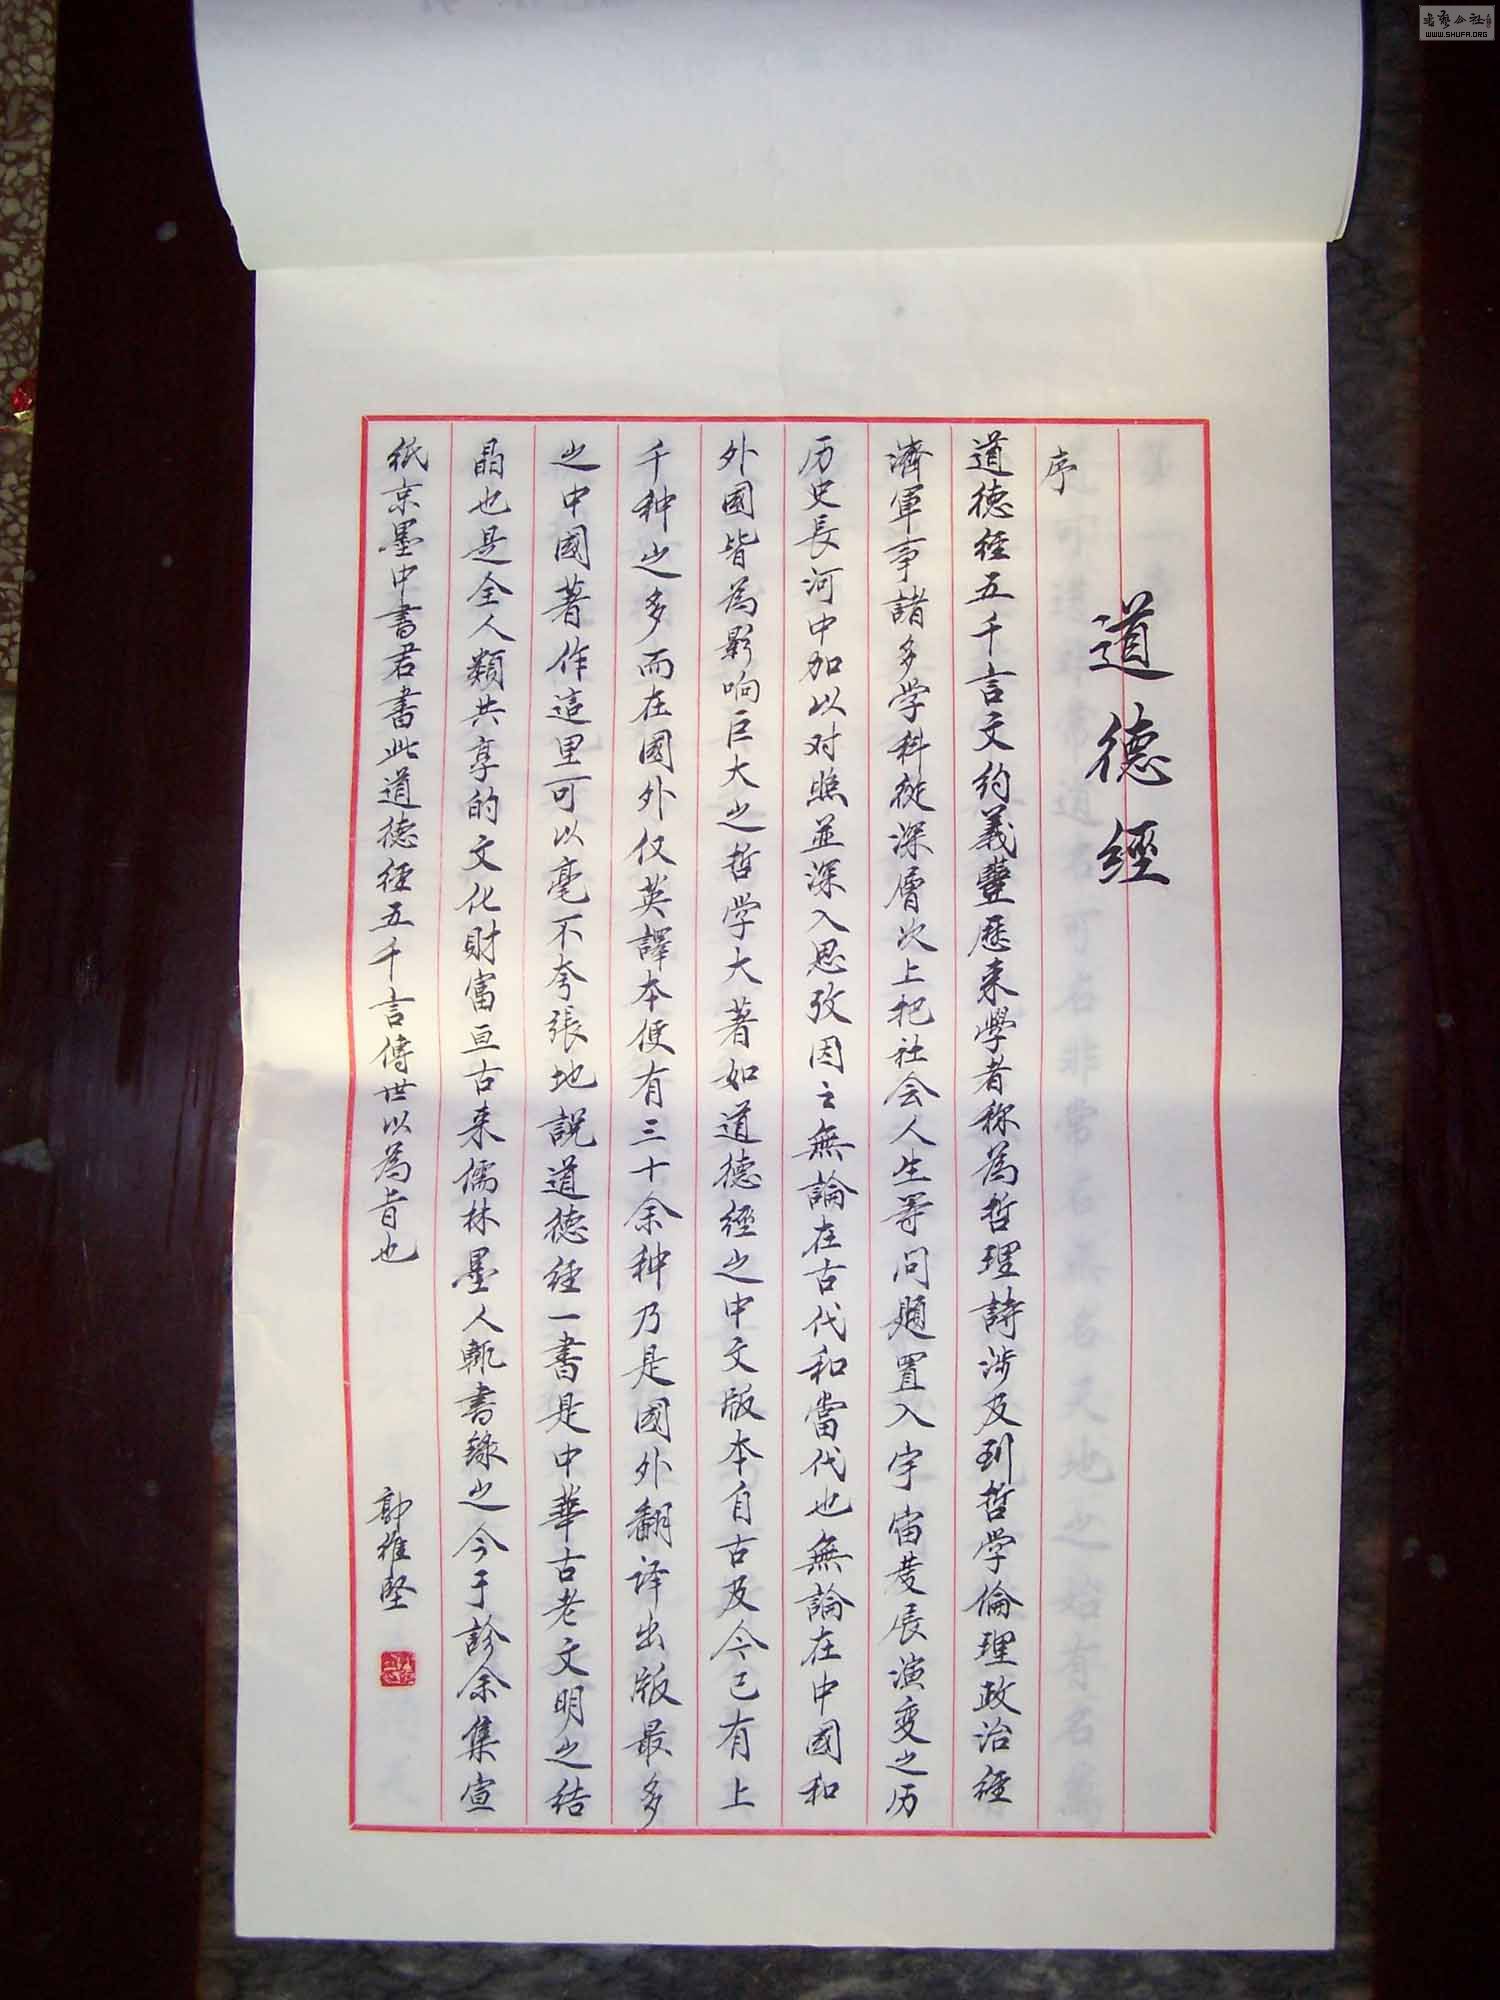 道德經
序
道德經五千言文約義豐歷来學者称為哲理詩涉及到哲学倫理政治經
濟軍事諸多学科從深層次上把社会人生等问題置入宇宙發展演变之历
历史長河中加以对照並深入思攷因之無論在古代和當代也無論在中國和
外國皆為影响巨大之哲学大著如道德經之中文版本自古及今已有上
千种之多而在國外仅英譯本便有三十余种乃是國外翻译出版最多
之中國著作這里可以毫不夸張地説道德經一書是中華古老文明之结
晶也是全人類共享的文化财富亘古来儒林墨人輒書録之今于診余集宣
纸京墨中書君書此道德經五千言傳世以為旨也
郭維堅
书艺公社
WWW.SHUFA.ORG